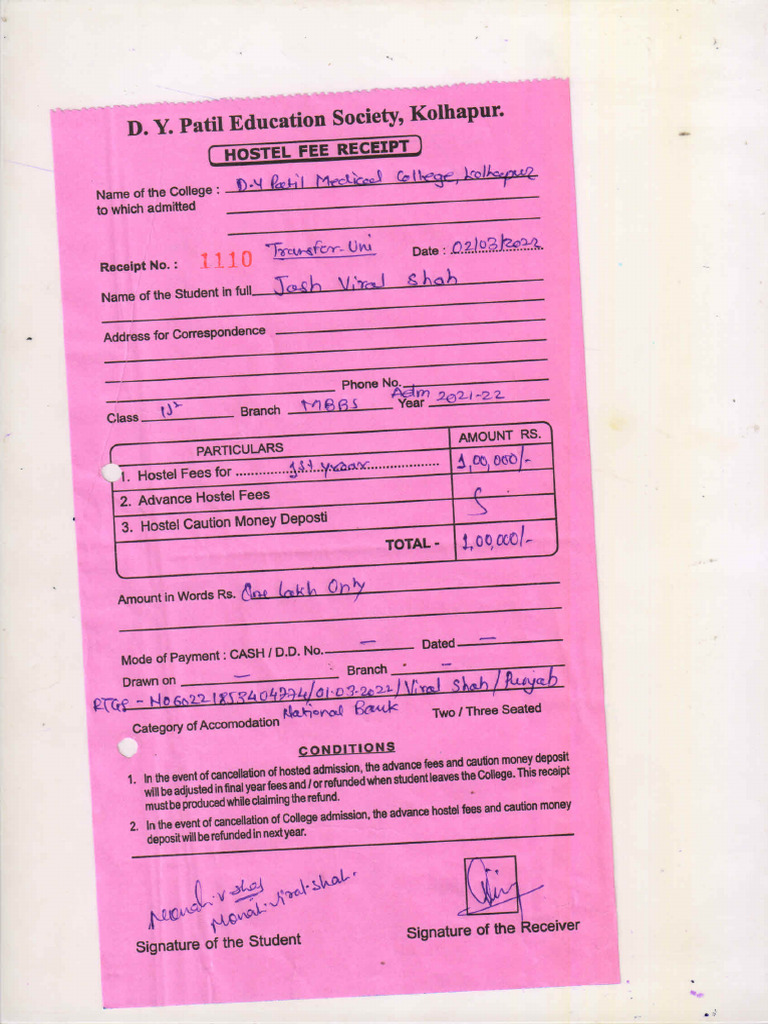 D. Y. Patil Education Society, Kolhapur.
HOSTEL FEE RECEIPT
Name of the College : D.Y Patil Medical College, Kolhapur
to which admitted
Receipt No. : 1110 Transfer-Uni Date : 02/03/2022
Name of the Student in full Jash Viral Shah
Address for Correspondence
Phone No.
Class Branch MBBS Adm Year 2021-22
PARTICULARS AMOUNT RS.
1. Hostel Fees for 1st year 1,00,000/-
2. Advance Hostel Fees
3. Hostel Caution Money Deposti
TOTAL - 1,00,000/-
Amount in Words Rs. One Lakh Only
Mode of Payment : CASH / D.D. No. — Dated —
Drawn on — Branch —
RTGS - /01-03-2022/Viral Shah/Punjab
National Bank
Category of Accomodation Two / Three Seated
CONDITIONS
1. In the event of cancellation of hosted admission, the advance fees and caution money deposit
will be adjusted in final year fees and / or refunded when student leaves the College. This receipt
must be produced while claiming the refund.
2. In the event of cancellation of College admission, the advance hostel fees and caution money
deposit will be refunded in next year.
Monali.viral.shah.
Signature of the Student Signature of the Receiver